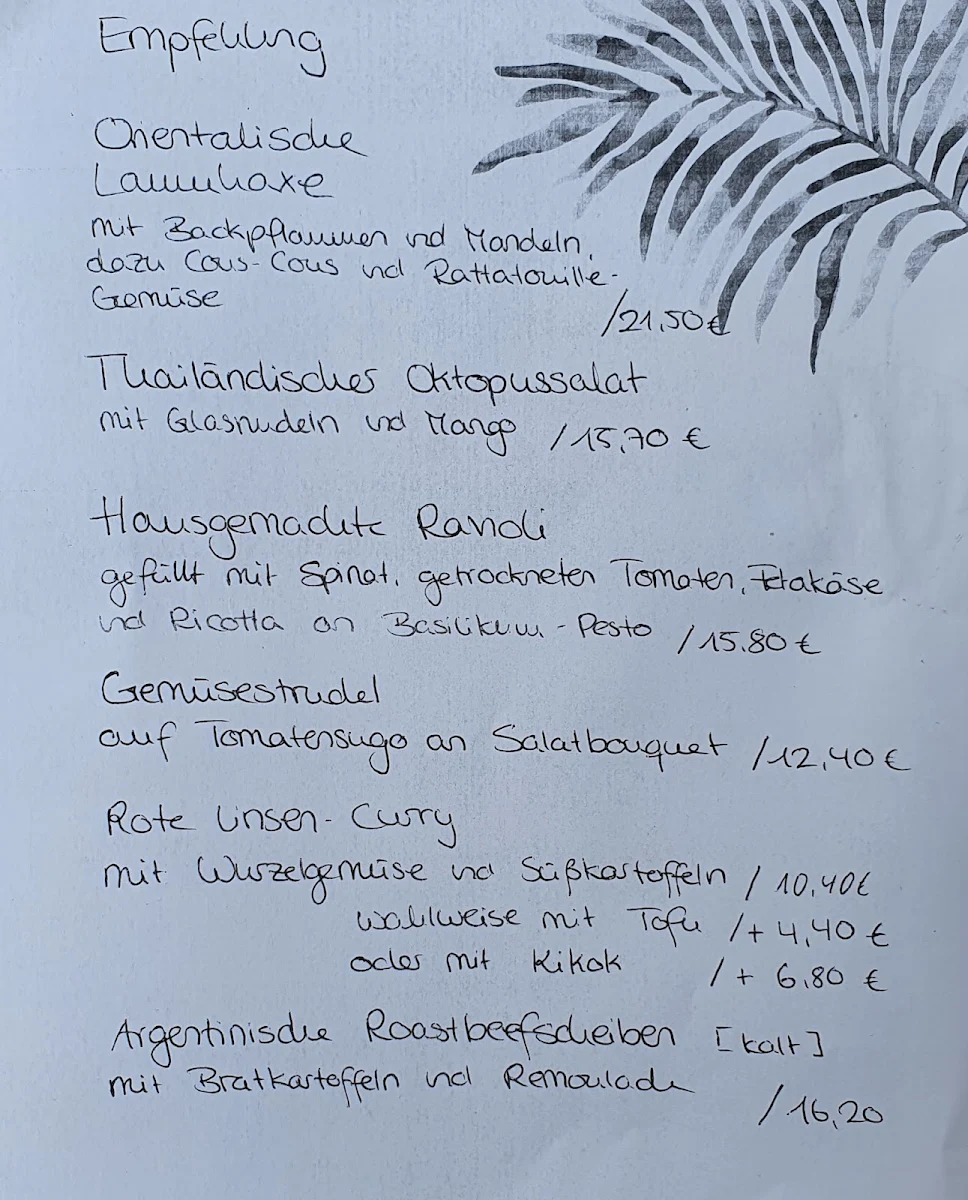 Empfehlung
Orientalische
Lammhaxe
mit Backpflaumen und Mandeln,
dazu Cous-Cous und Rattatouille-
Gemüse
/21,50€
Thailändisches Oktopussalat
mit Glasnudeln und Mango /15,70 €
Hausgemachte Ravioli
gefüllt mit Spinat, getrockneten Tomaten, Fetakäse
und Ricotta an Basilikum-Pesto /15.80 €
Gemüsestrudel
auf Tomatensugo an Salatbouquet /12,40 €
Rote Linsen-Curry
mit Wurzelgemüse und Süßkartoffeln / 10,40€
wahlweise mit Tofu /+ 4,40 €
oder mit Kikok / + 6,80 €
Argentinische Roastbeefscheiben [kalt]
mit Bratkartoffeln und Remoulade
/16,20